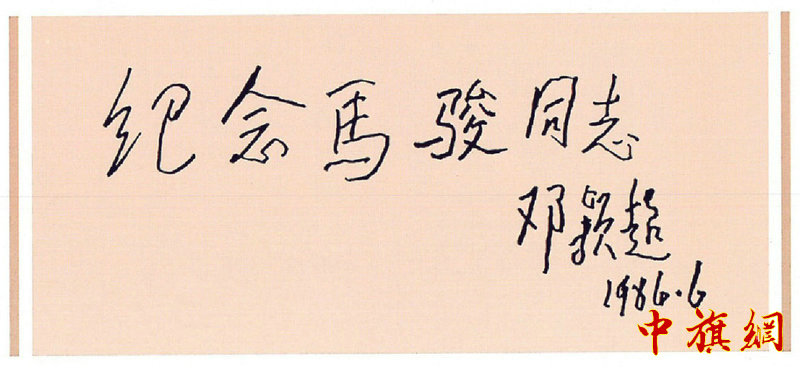 纪念馬骏同志
邓颖超
1986.6
中旗網